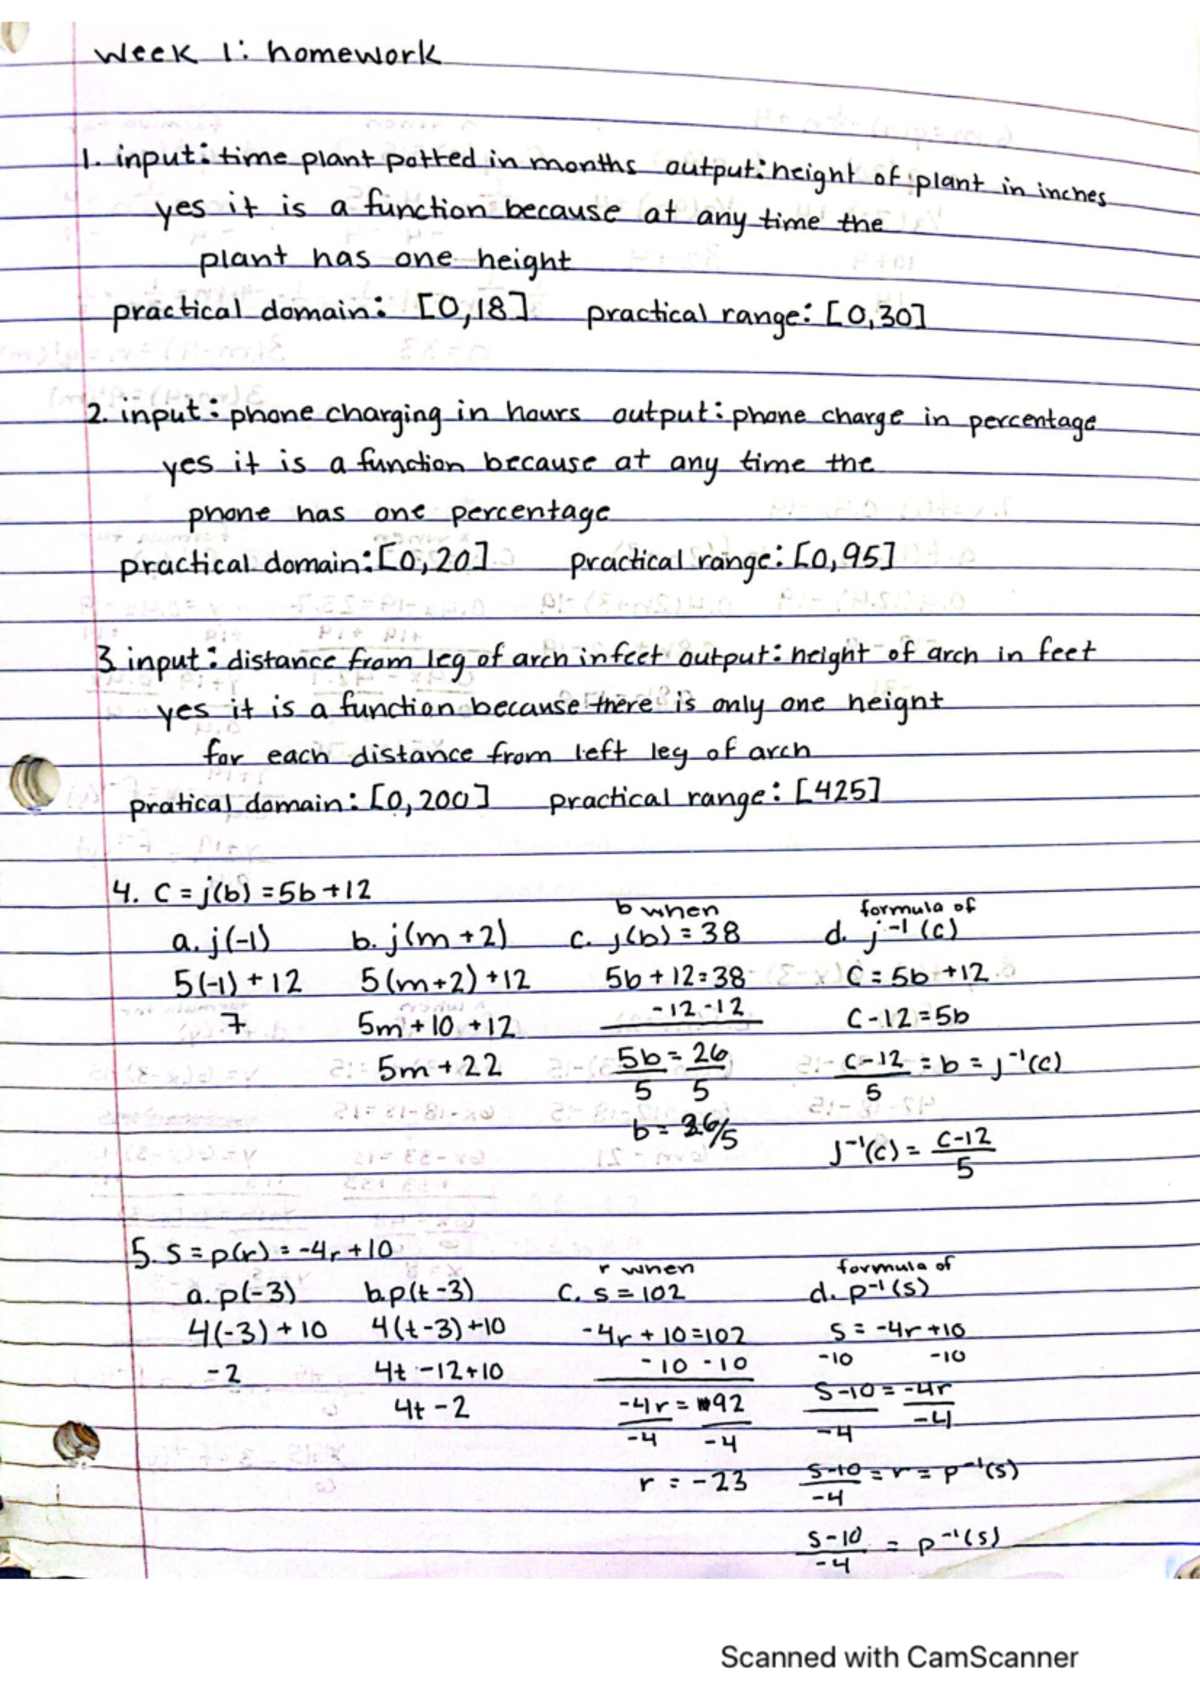 week 1: homework
1. input: time plant potted in months output: height of plant in inches
yes it is a function because at any time the
plant has one height
practical domain: [0,18] practical range: [0,30]
2. input: phone charging in hours output: phone charge in percentage
yes it is a function because at any time the
phone has one percentage
practical domain: [0,20] practical range: [0,95]
3. input: distance from leg of arch in feet output: height of arch in feet
yes it is a function because there is only one height
for each distance from left leg of arch
pratical domain: [0,200] practical range: [425]
4. C = j(b) = 5b+12
b when formula of
a. j(-1) b. j(m+2) c. j(b) = 38 d. j⁻¹(c)
5(-1)+12 5(m+2)+12 5b+12=38 C = 5b+12
7 5m+10+12 -12 -12 C-12=5b
5m+22 5b = 26 C-12 = b = j⁻¹(c)
5 5 5
b = 26/5 j⁻¹(c) = C-12
5
5. S = p(r) = -4r+10
r when formula of
a. p(-3) b. p(t-3) C. S = 102 d. p⁻¹(s)
4(-3)+10 4(t-3)+10 -4r+10=102 S = -4r+10
-2 4t-12+10 -10 -10 -10 -10
4t-2 -4r = 92 S-10 = -4r
-4 -4 -4 -4
r = -23 S-10 = r = p⁻¹(s)
-4
S-10 = p⁻¹(s)
-4
Scanned with CamScanner